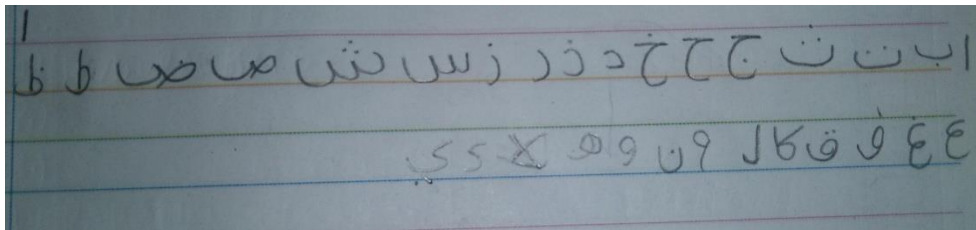 ا ب ت ث ج ح خ د ذ ر ز س ش ص ض ط ظ
ع غ ف ق ك ل م ن و ه لا ء ي